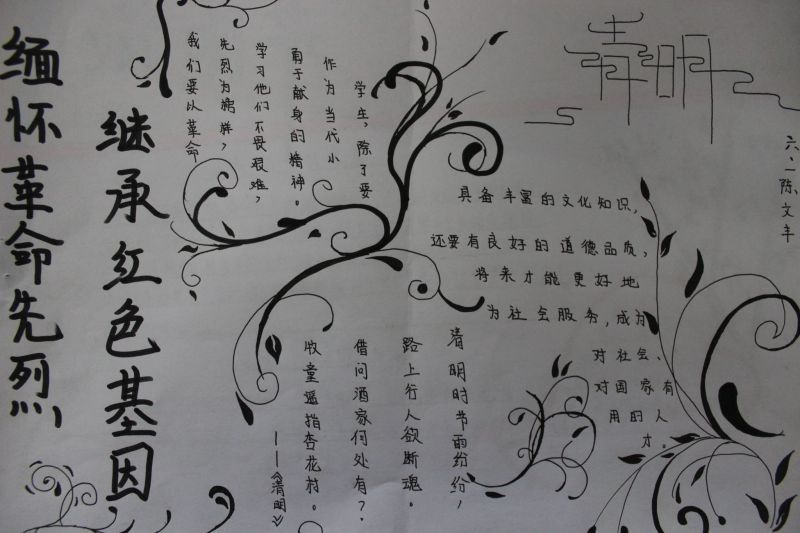 缅怀革命先烈
继承红色基因
我们要从革命
先烈为榜样，
学习他们不畏艰难，
勇于献身的精神。
作为当代小
学生，除了要
具备丰富的文化知识，
还要有良好的道德品质，
将来才能更好地
为社会服务，成为
对社会、
对国家有
用的人
才。
清明
六、一陈文丰
清明时节雨纷纷，
路上行人欲断魂。
借问酒家何处有？
牧童遥指杏花村。
——《清明》